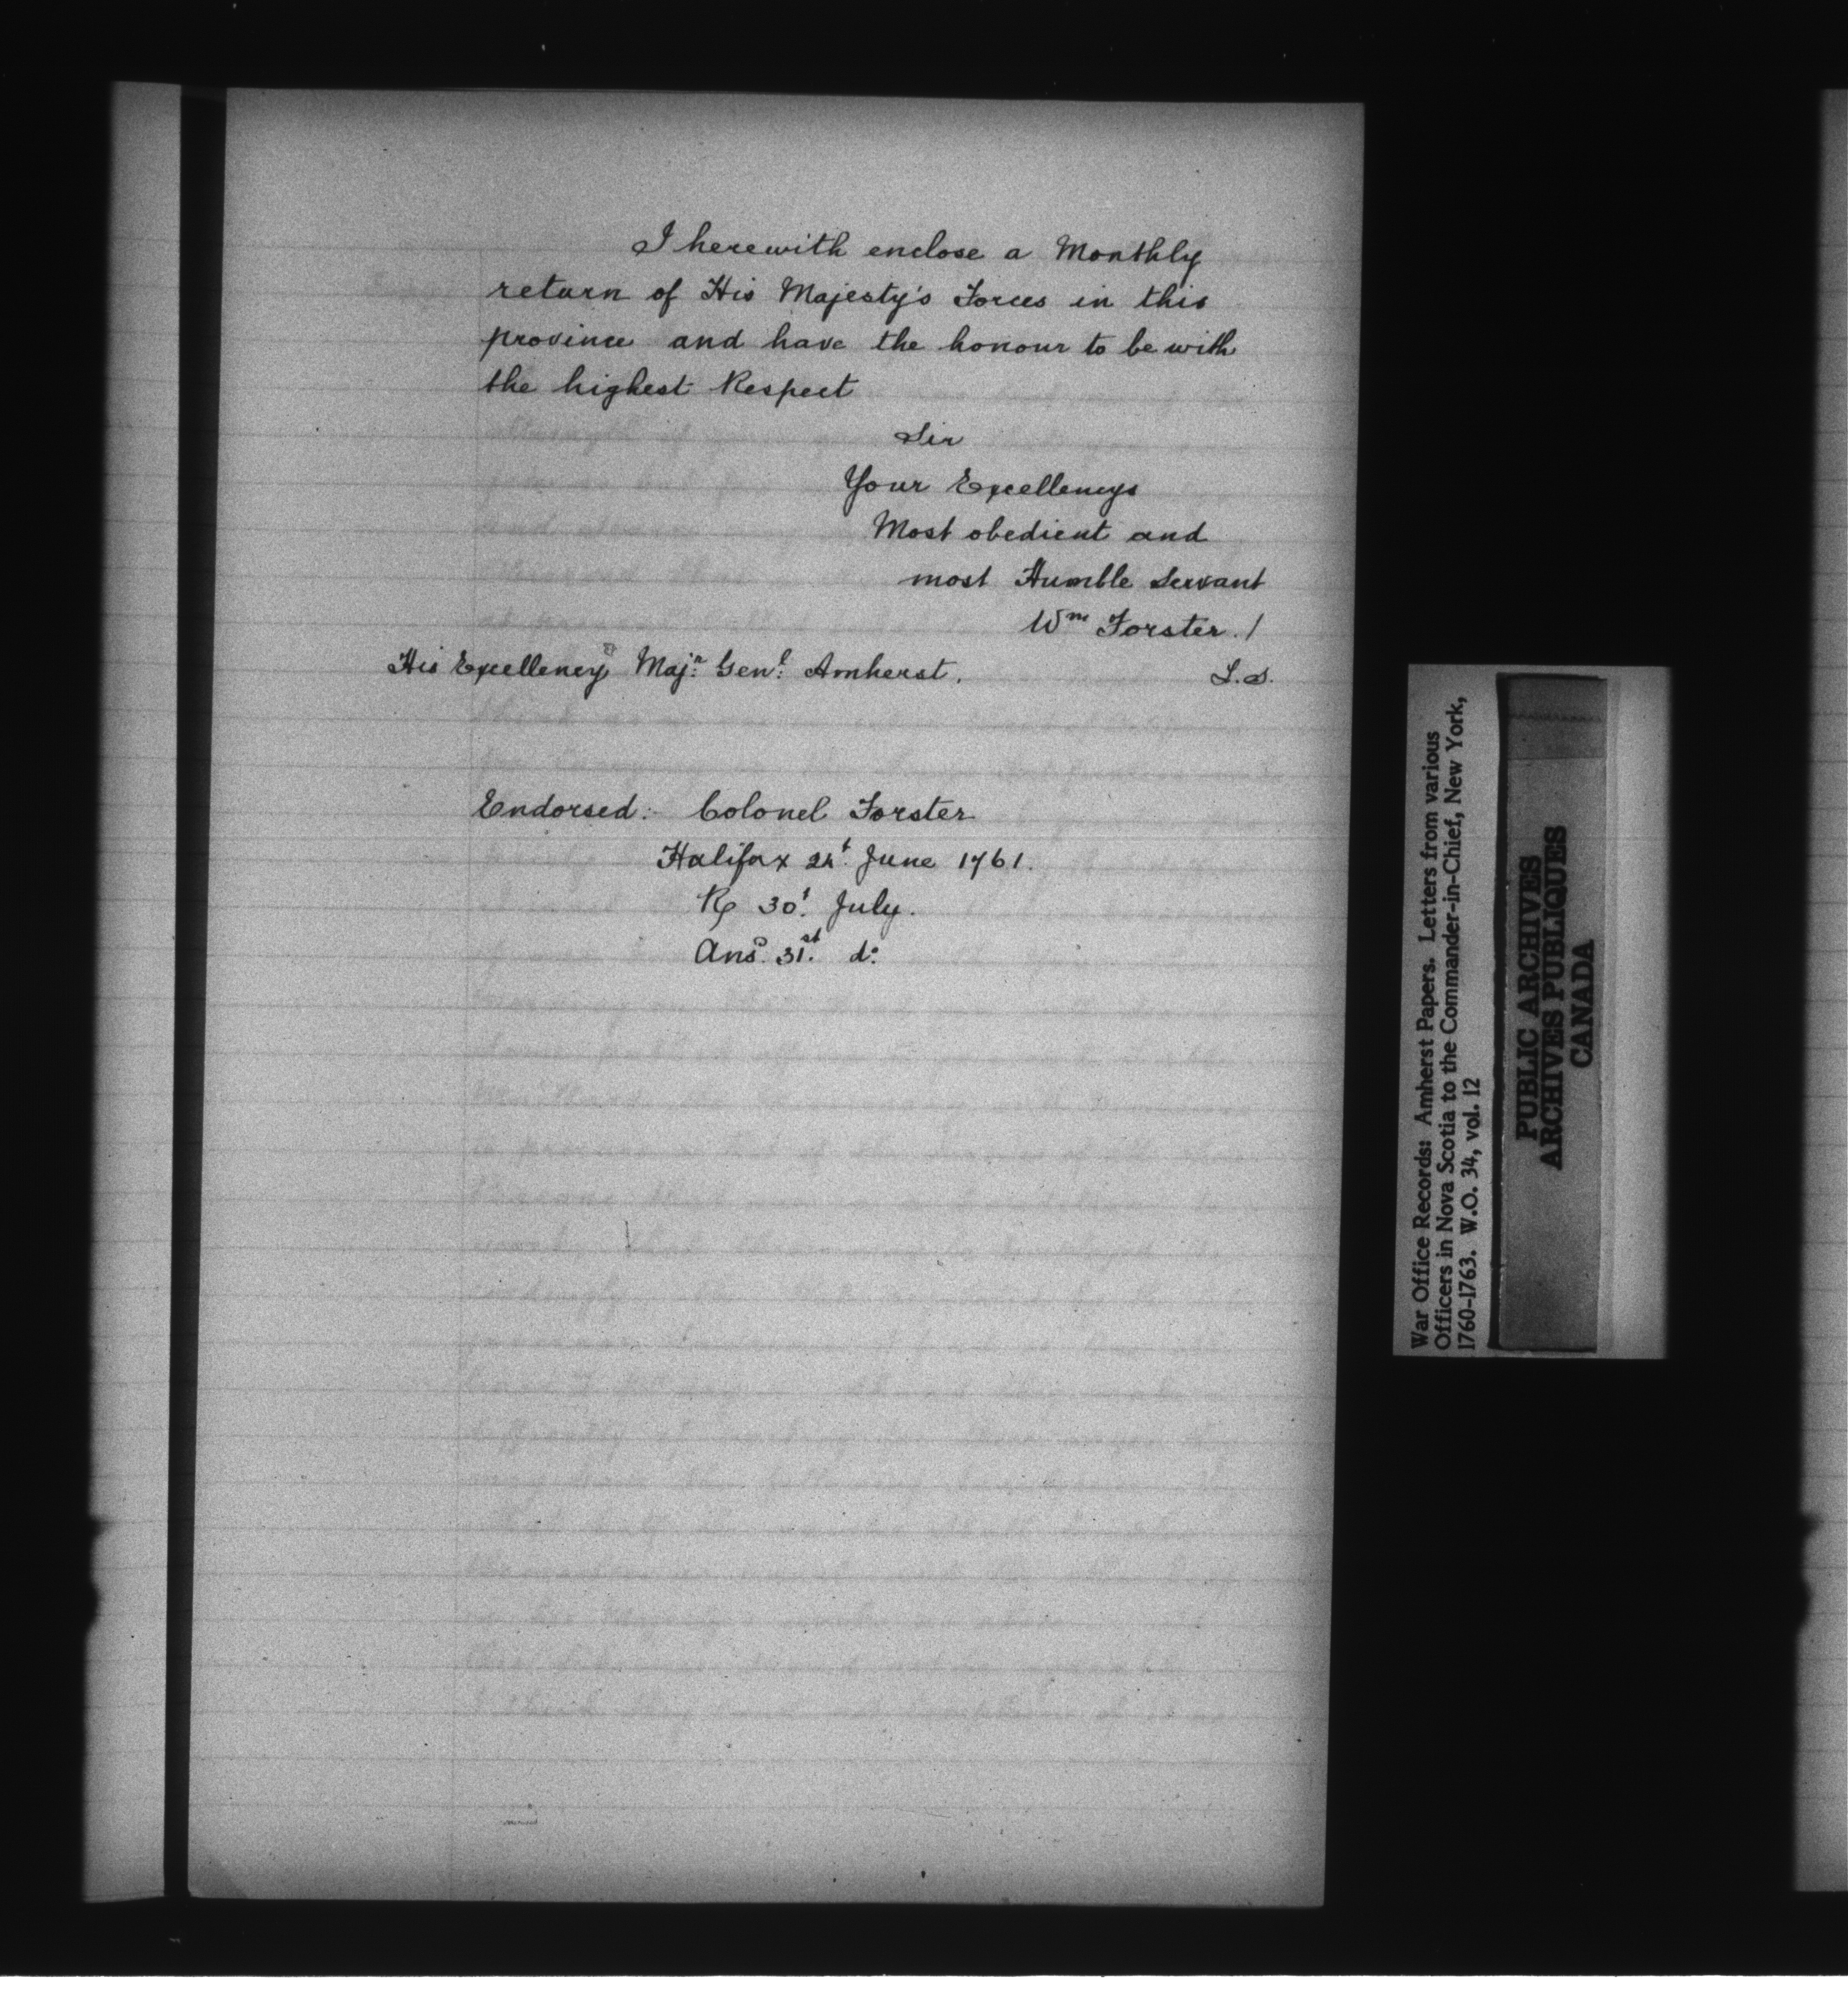 I herewith enclose a Monthly
return of His Majesty's Forces in this
province and have the honour to be with
the highest Respect
Sir
Your Excellencys
Most obedient and
most Humble Servant
Wm Forster. /
His Excellency Majr. Genl. Amherst.
L.S.
Endorsed:- Colonel Forster
Halifax June 1761.
30t. July.
Ansd. 31st. do.
War Office Records: Amherst Papers. Letters from various
Officers in Nova Scotia to the Commander-in-Chief, New York,
1760-1763. W.O. 34, vol. 12
PUBLIC ARCHIVES
ARCHIVES PUBLIQUES
CANADA